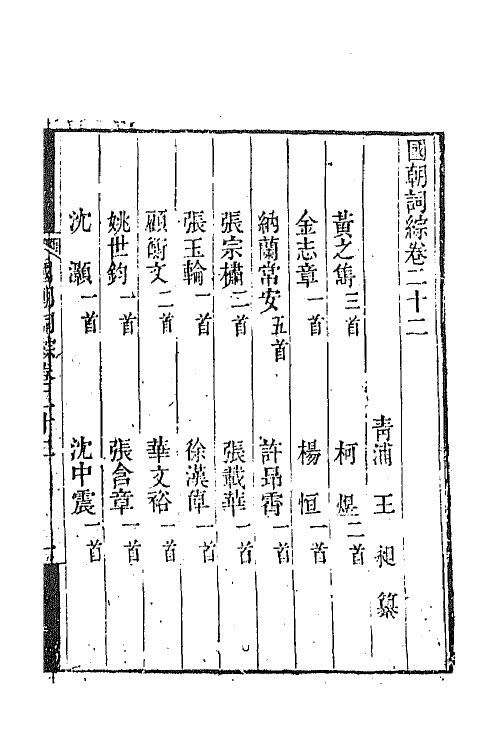 國朝詞綜卷二十二
青浦 王 昶 纂
黃之雋三首 柯 煜二首
金志章一首 楊 恒一首
納蘭常安五首 許昂霄一首
張宗橚二首 張載華一首
張玉輪一首 徐漢倬一首
顧衡文二首 華文裕一首
姚世鈞一首 張含章一首
沈 灝一首 沈中震一首
國朝詞綜卷二十二